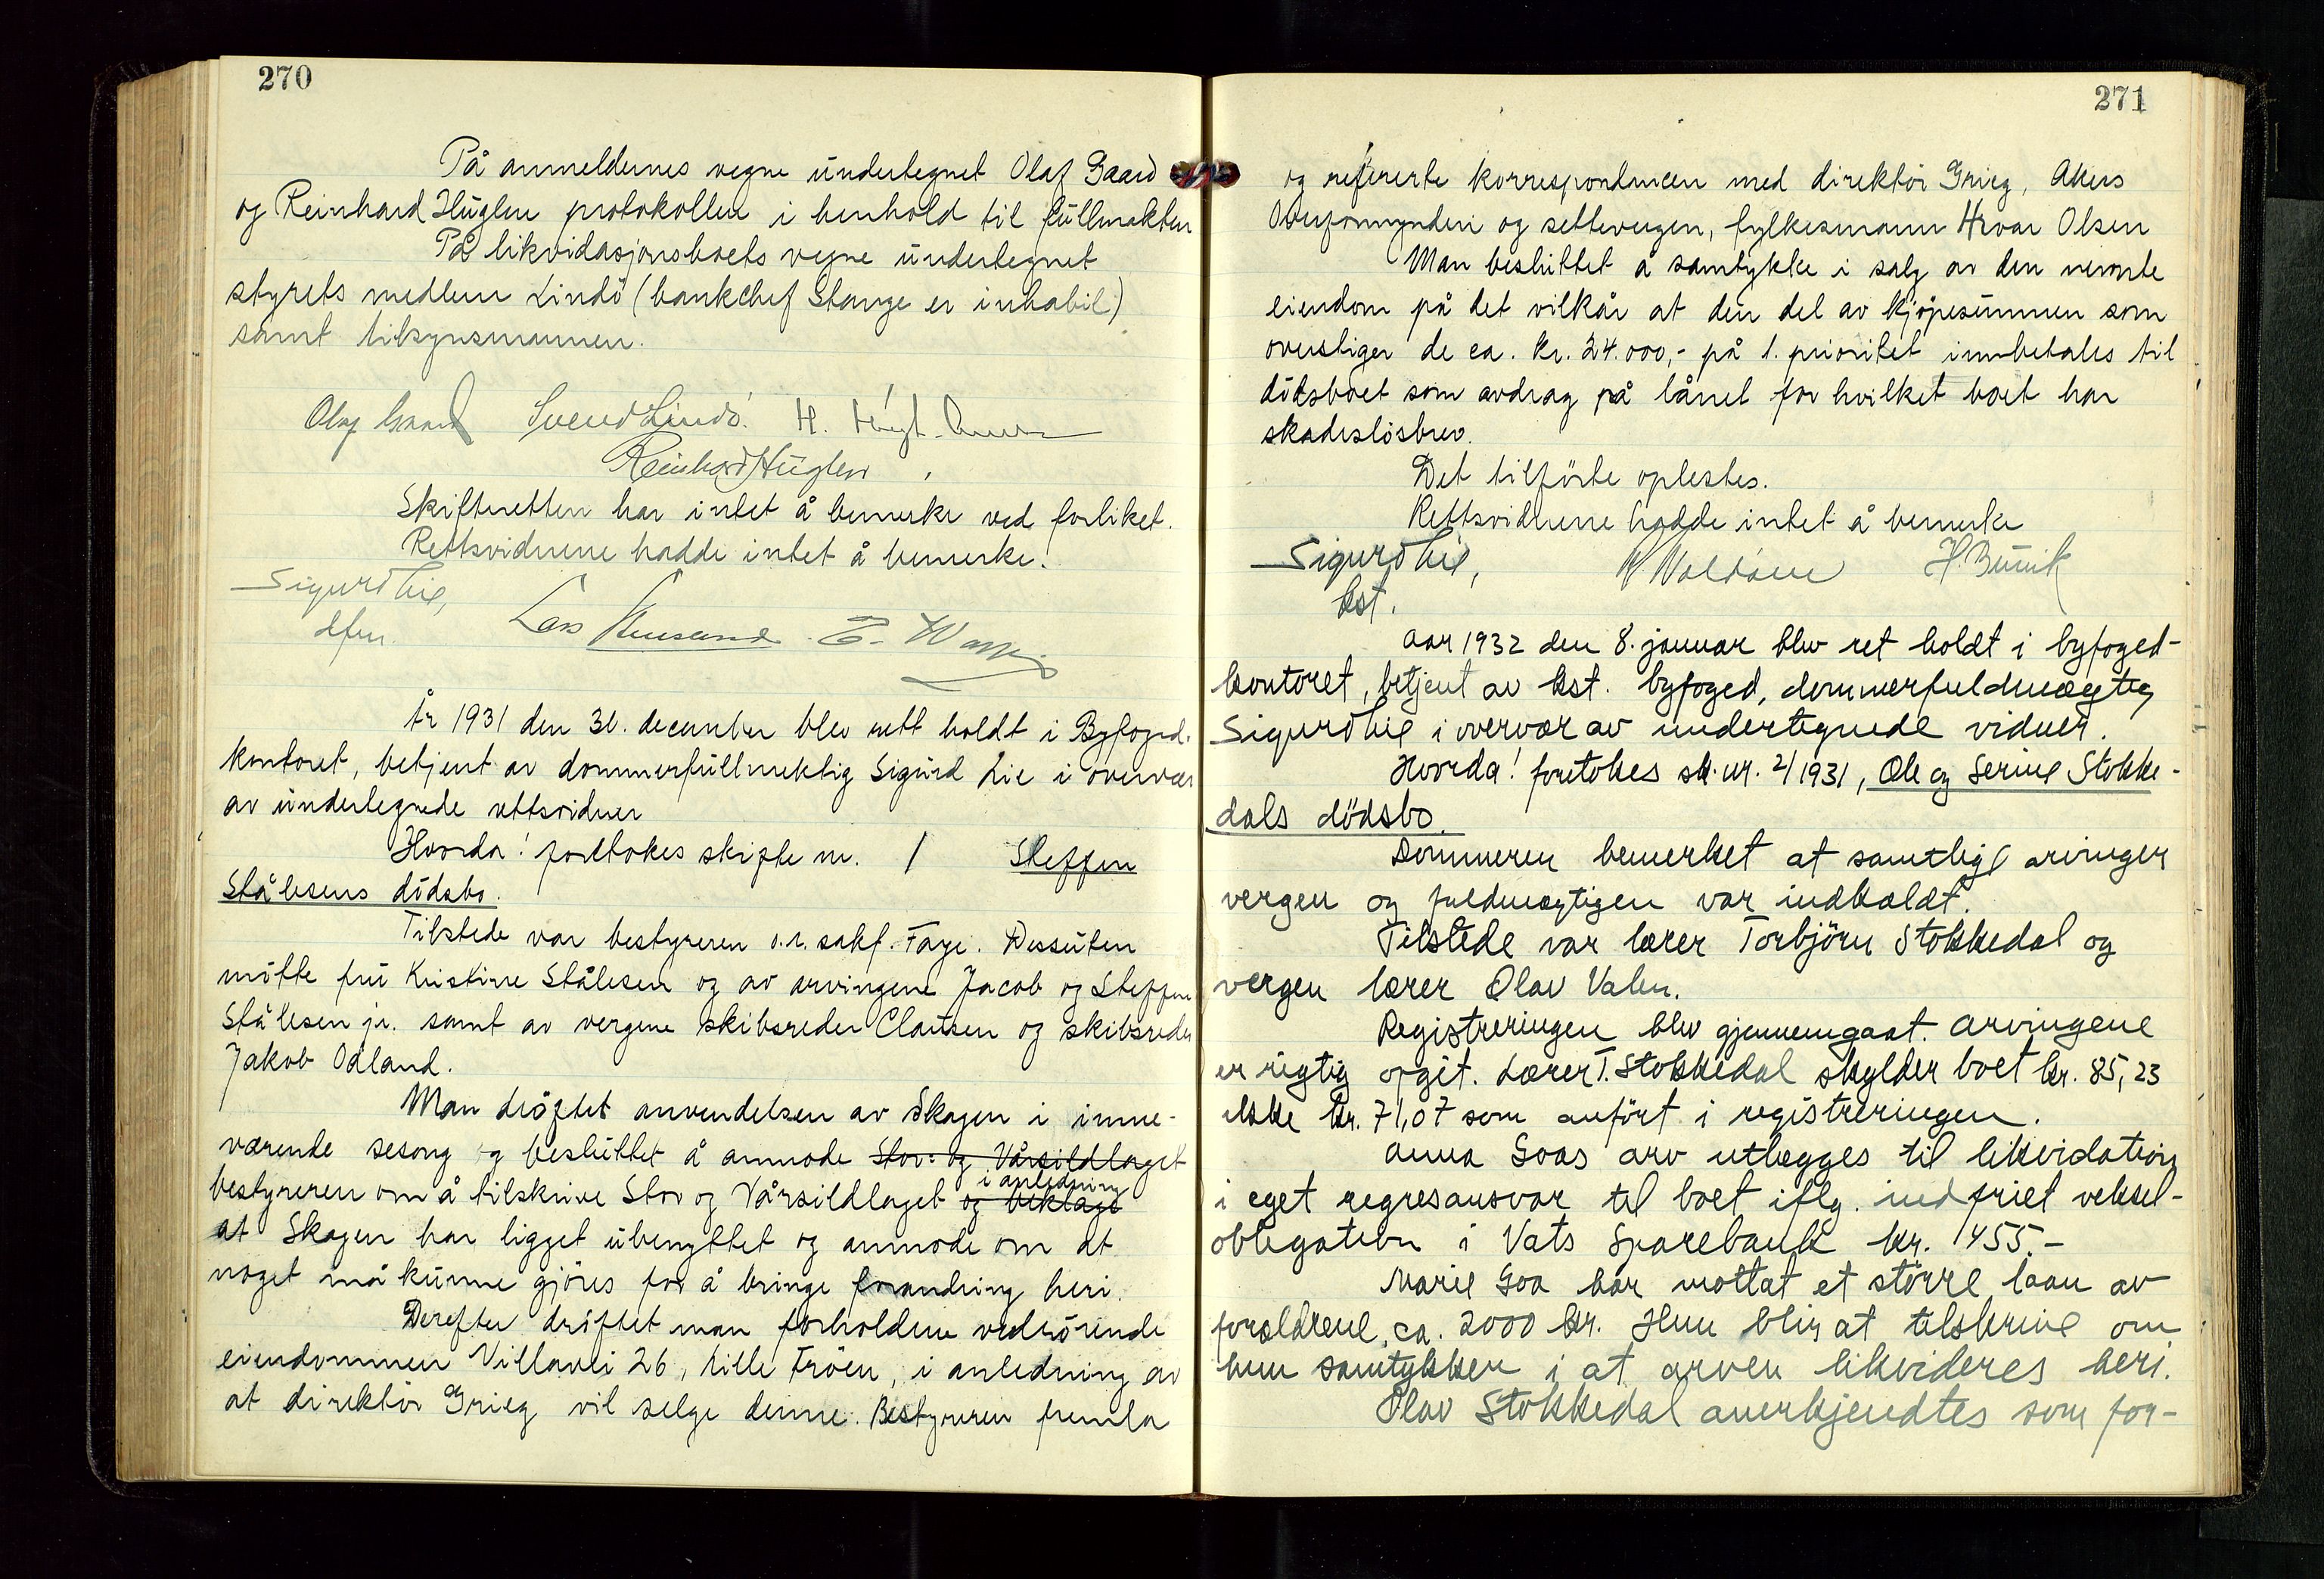 270
På anmeldernes vegne undertegnet Olaf Gaard
og Reinhard Huglen protokollen i henhold til fullmakten
På likvidasjonsboets vegne undertegnet
styrets medlem Lindö (bankchef Stange er inhabil)
samt tilsynsmannen.
Olaf Gaard Svend Lindö. H.
Reinhard Huglen
Skifteretten har intet å bemerke ved forliket.
Rettsvidnene hadde intet å bemerke.
Sigurd Lie,
dfm. Lars
År 1931 den 31. december blev rett holdt i Byfoged-
kontoret, betjent av dommerfullmektig Sigurd Lie i overvær
av undertegnede rettsvidner
Hvorda! foretokes skifte nr. / Steffen
Stålesens dödsbo.
Tilstede var bestyreren o.r. sakf. Faye. Dessuten
mötte fru Kristine Stålesen og av arvingene Jacob og Steffen
Stålesen jr. samt av vergene skibsreder Clausen og skibsreder
Jakob Odland.
Man dröftet anvendelsen av Skagen i inne-
værende sesong og besluttet å anmode Stor- og Vårsildlaget
bestyreren om å tilskrive Stor og Vårsildlaget og beklage i anledning
at Skagen har ligget ubenyttet og anmode om at
noget må kunne gjöres for å bringe forandring heri.
Derefter dröftet man forholdene vedrörende
eiendommen Villavei 26, Lille Fröen, i anledning av
at direktör Grieg vil selge denne. Bestyreren fremla
271
og refererte korrespondancen med direktör Grieg, Akers
Overformynderi og setteverigen, fylkesmann Hroar Olsen
Man besluttet å samtykke i salg av den nevnte
eiendom på det vilkår at den del av kjöpesummen som
overstiger de ca. kr. 24.000,- på 1. prioritet innbetales til
dödsboet som avdrag på lånet for hvilket boet har
skadeslösbrev.
Det tilförte oplestes.
Rettsvidnene hadde intet å bemerke
Sigurd Lie, H.
kst.
Aar 1932 den 8. januar blev ret holdt i byfoged-
kontoret, betjent av kst. byfoged, dommerfuldmægtig
Sigurd Lie i overvær av undertegnede vidner.
Hvorda! foretokes sk. nr. 2/1931, Ole og Serine Stokke-
dals dödsbo.
Dommeren bemerket at samtlige arvinger
vergen og fuldmægtigen var indkaldt.
Tilstede var lærer Torbjörn Stokkedal og
vergen lærer Olav Valen.
Registreringen blev gjennemgaat. Arvingene
er rigtig opgit. Lærer T. Stokkedal skylder boet kr. 85,23
ikke kr. 71,07 som anfört i registreringen.
Anna Goas arv utlægges til likvidation
i eget regresansvar til boet iflg. indfriet veksel-
obligation i Vats Sparebank kr. 1455.-
Marie Goa har mottat et större laan av
forældrene, ca. 2000 kr. Hun blir at tilskrive om
hun samtykker i at arven likvideres heri.
Olav Stokkedal anerkjendtes som for-